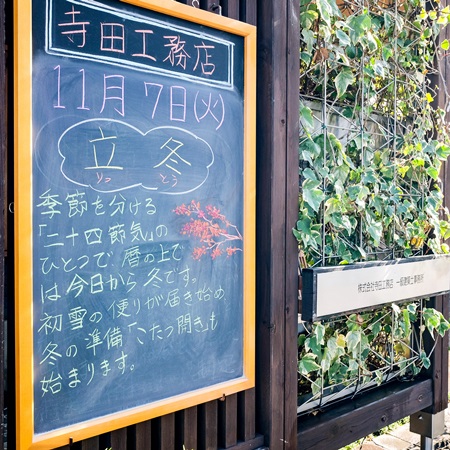 寺田工務店
11月7日(火)
立冬
りっ とう
季節を分ける
「二十四節気」の
ひとつで 暦の上で
は今日から 冬です。
初雪の便りが届き始め、
冬の準備「こたつ開き」も
始まります。
株式会社寺田工務店 一級建築士事務所